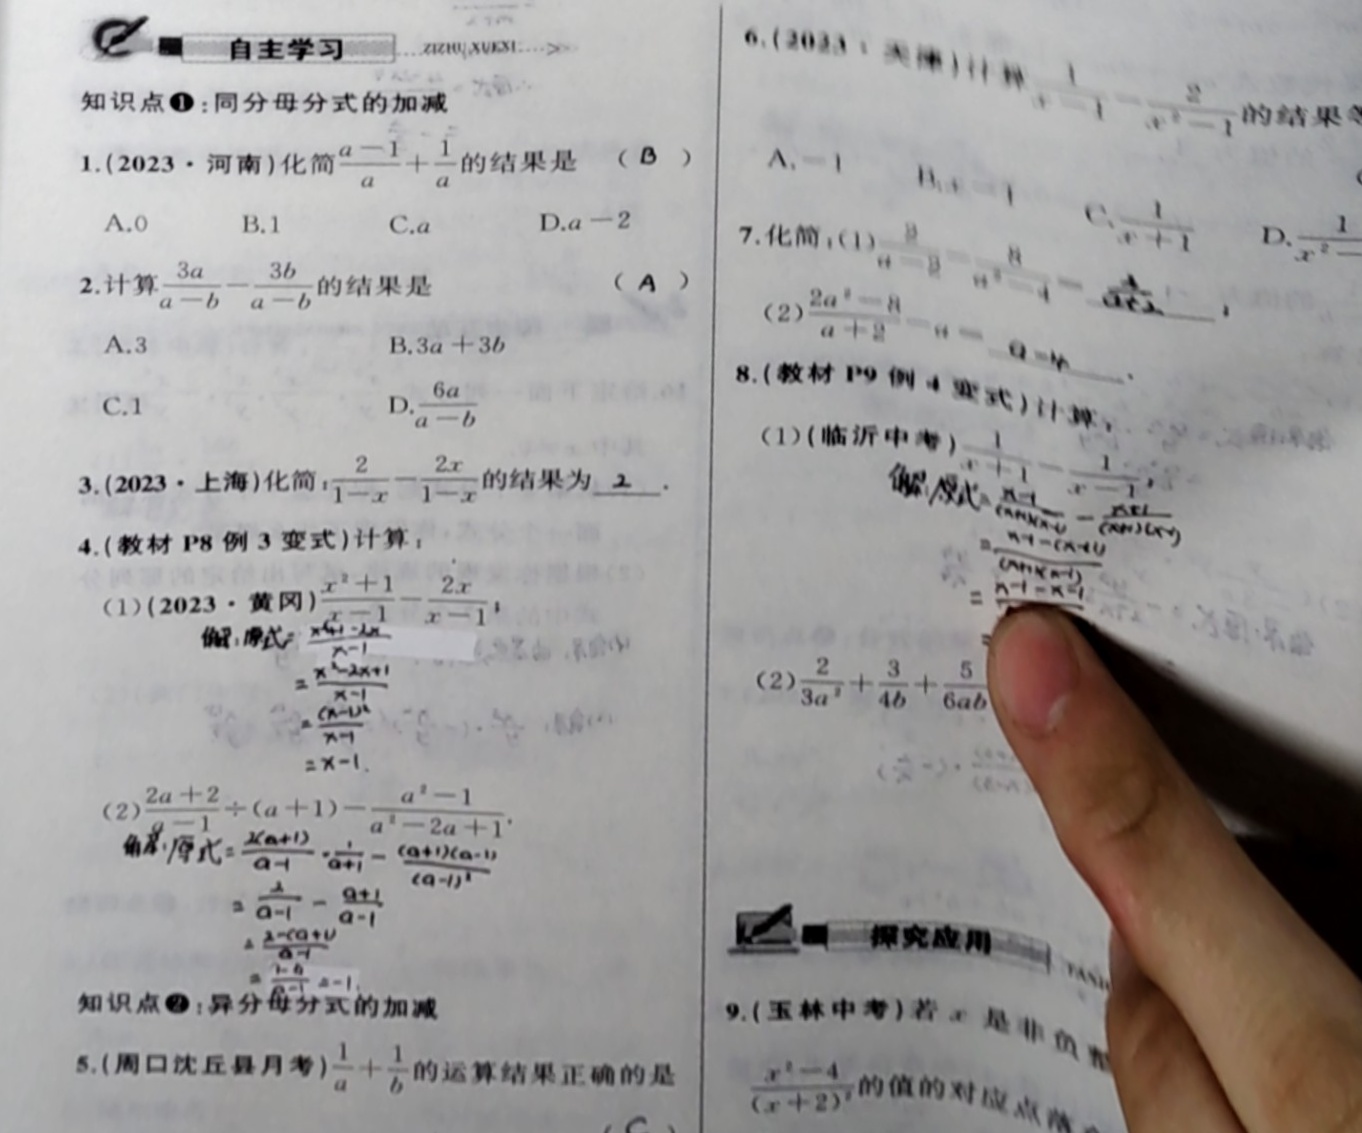 自主学习 ZIZHU XUEXI
知识点❶:同分母分式的加减
1.(2023·河南)化简 (a-1)/a + 1/a 的结果是 ( B )
A.0 B.1 C.a D.a-2
2.计算 3a/(a-b) - 3b/(a-b) 的结果是 ( A )
A.3 B.3a+3b
C.1 D. 6a/(a-b)
3.(2023·上海)化简: 2/(1-x) - 2x/(1-x) 的结果为 2 .
4.(教材 P8 例 3 变式)计算:
(1)(2023·黄冈) (x²+1)/(x-1) - 2x/(x-1);
解:原式= (x²+1-2x)/(x-1)
= (x²-2x+1)/(x-1)
= (x-1)²/(x-1)
= x-1.
(2) (2a+2)/(a-1) ÷(a+1)- (a²-1)/(a²-2a+1).
解:原式= 2(a+1)/(a-1) · 1/(a+1) - (a+1)(a-1)/(a-1)²
= 2/(a-1) - (a+1)/(a-1)
= (2-(a+1))/(a-1)
= (1-a)/(a-1) = -1.
知识点❷:异分母分式的加减
5.(周口沈丘县月考) 1/a + 1/b 的运算结果正确的是
( C )
6.(2023·天津)计算 1/(x-1) - 2/(x²-1) 的结果
A.-1 B.x-1 C. 1/(x+1) D. 1/(x²-
7.化简:(1)
(2) (2a²-8)/(a+2) - a = a-4 .
8.(教材 P9 例 4 变式)计算:
(1)(临沂中考) 1/(x+1) - 1/(x-1);
解:原式= (x-1)/(x+1)(x-1) - (x+1)/(x+1)(x-1)
= (x-1-(x+1))/(x+1)(x-1)
= x-1-x-1
(2) 2/3a² + 3/4b + 5/6ab
探究应用
9.(玉林中考)若 x 是非负整
(x²-4)/(x+2)² 的值的对应点落